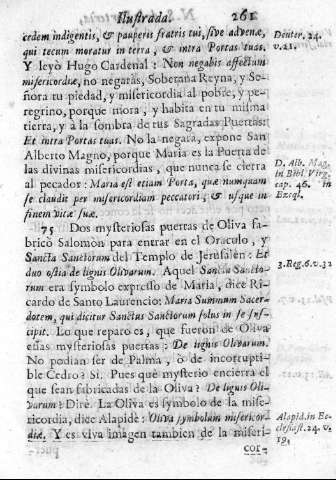 Ilustrada. 261
cedem indigentis, & pauperis fratris tui, sive advenæ,
qui tecum moratur in terra, & intra Portas tuas.
Y leyò Hugo Cardenal: Non negabis affectum
misericordiæ, no negaràs, Soberana Reyna, y Se-
ñora tu piedad, y misericordia al pobre, y pe-
regrino, porque mora, y habita en tu misma
tierra, y à la sombra de tus Sagradas Puertas:
Et intra Portas tuas. No la negara, expone San
Alberto Magno, porque Maria es la Puerta de
las divinas misericordias, que nunca se cierra
al pecador: Maria est etiam Porta, quæ numquam
se claudit per misericordiam peccatori, & usque in
finem vitæ suæ.
75 Dos mysteriosas puertas de Oliva fa-
bricò Salomòn para entrar en el Oraculo, y
Sancta Sanctorum del Templo de Jerusalèn: Et
duo ostia de lignis Olivarum. Aquel Sancta Sancto-
rum era symbolo expresso de Maria, dice Ri-
cardo de Santo Laurencio: Maria Summum Sacer-
dotem, qui dicitur Sanctus Sanctorum solus in se sus-
cipit. Lo que reparo es, que fueron de Oliva
essas mysteriosas puertas: De lignis Olivarum.
No podian ser de Palma, ò de incorrupti-
ble Cedro? Si. Pues què mysterio encierra el
que sean fabricadas de la Oliva? De lignis Oli-
varum? Dirè. La Oliva es symbolo de la mise-
ricordia, dice Alapide: Oliva symbolum misericor-
diæ. Y es viva imagen tambien de la miseri-
cor-
Deuter. 24.
v. 21.
D. Alb. Mag.
in Bibl. Virg.
cap. 46. in
Ezeq.
3. Reg. 6. v. 32
Alapid. in Ec-
clesiast. 24. v.
19.